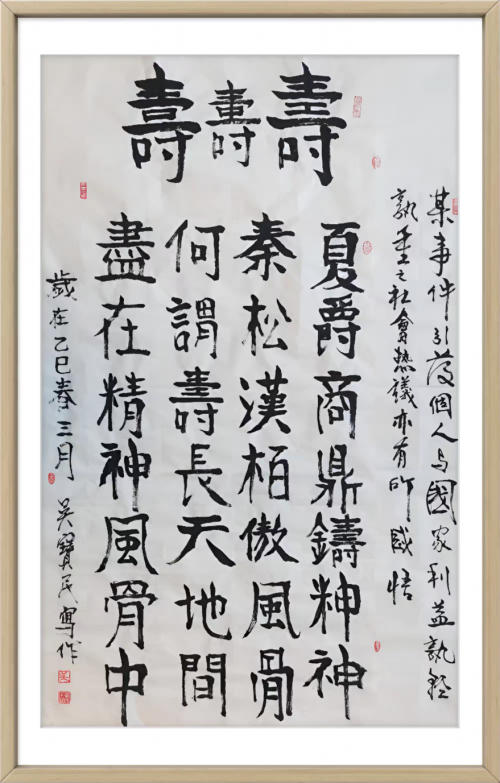 壽壽壽
某事件引發個人与國家利益孰輕
孰重之社會热議亦有所感悟
夏爵商鼎鑄精神
秦松漢柏傲風骨
何謂壽長天地間
盡在精神風骨中
歲在乙巳春三月 吴寶民寫作